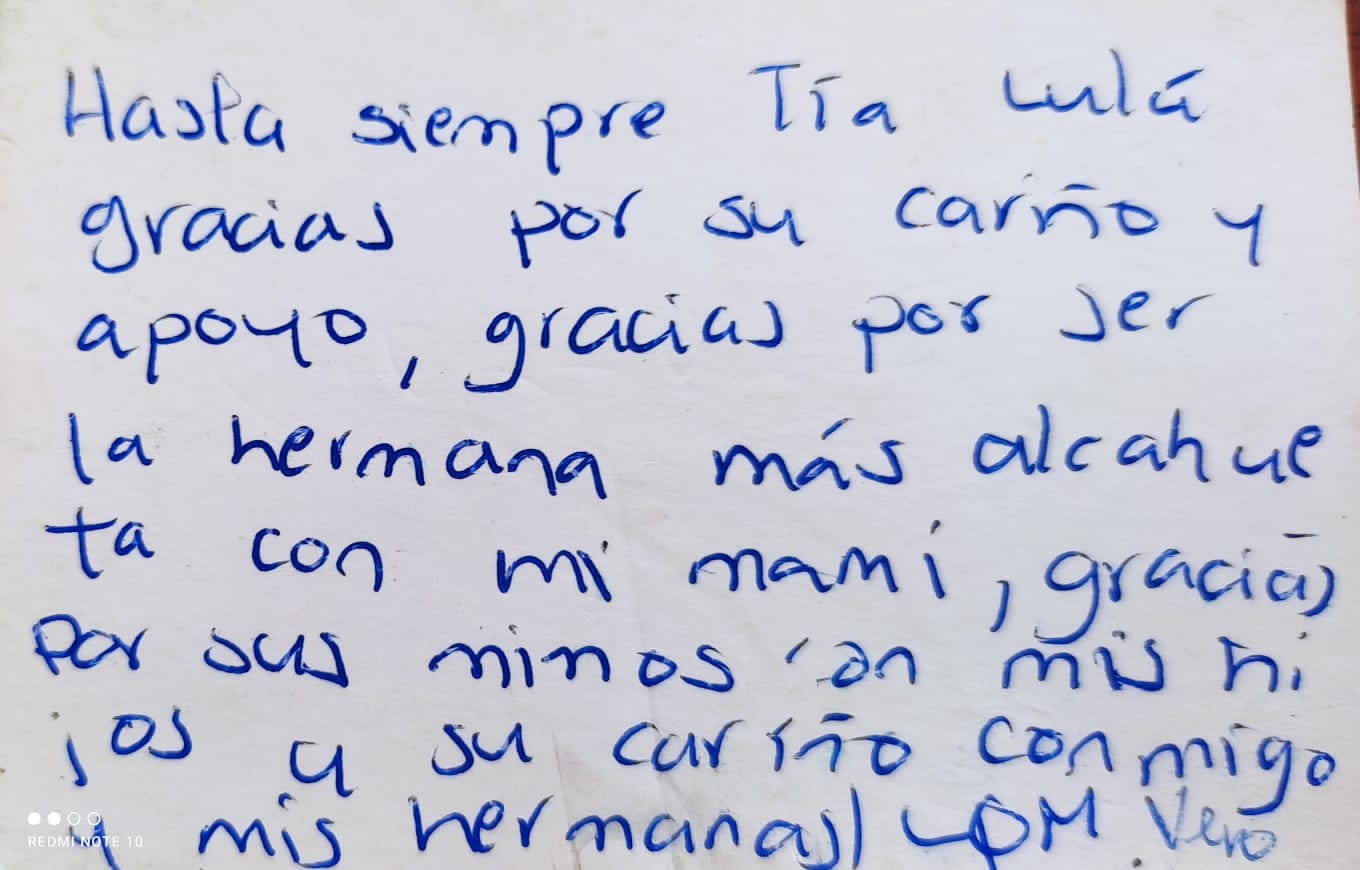 Hasta siempre Tía Lulá
gracias por su cariño y
apoyo, gracias por ser
la hermana más alcahue
ta con mi mamí, gracias
Por sus mimos con mis hi
jos y su cariño conmigo
y mis hermanas LQM. Vero
REDMI NOTE 10